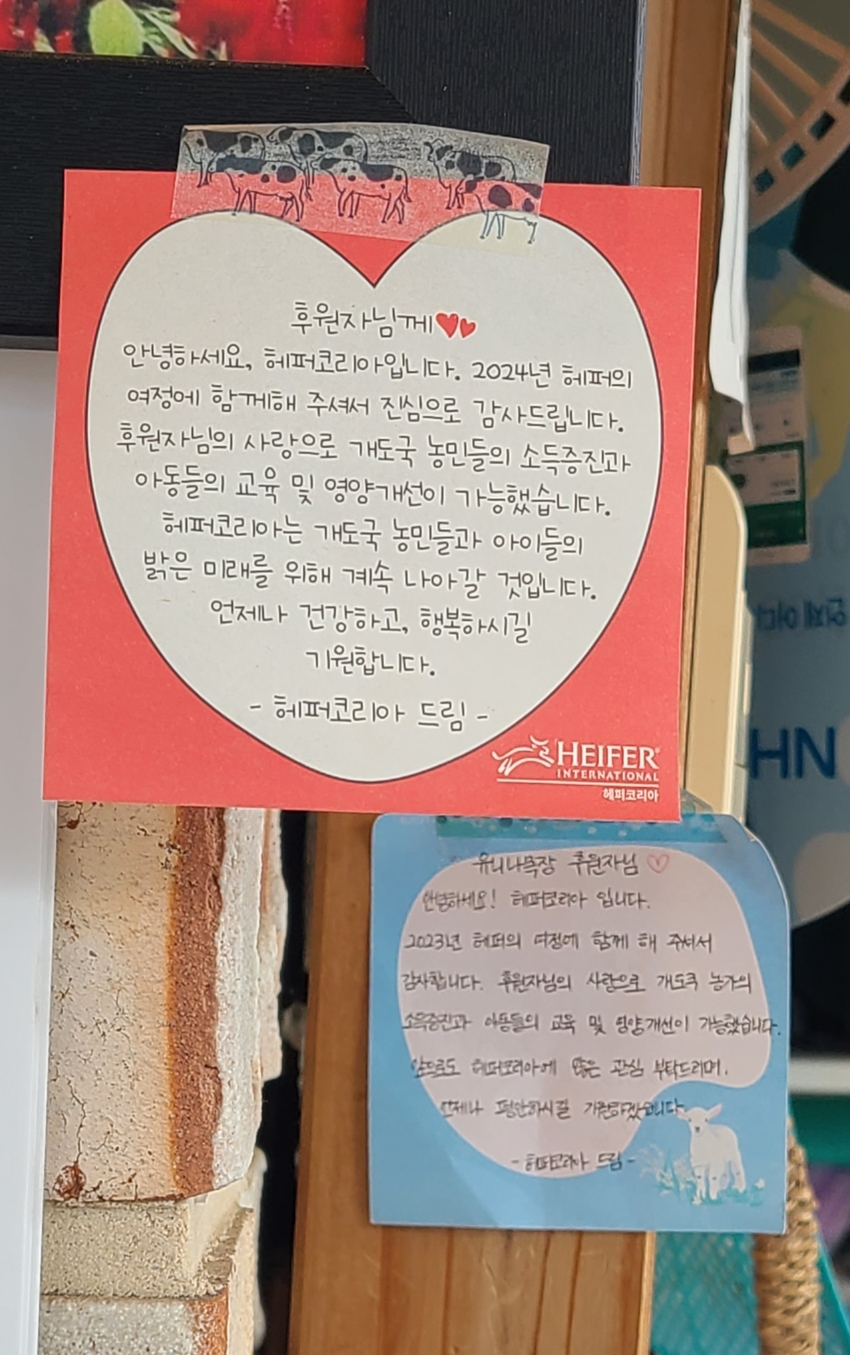 후원자님께
안녕하세요, 헤퍼코리아입니다. 2024년 헤퍼의
여정에 함께해 주셔서 진심으로 감사드립니다.
후원자님의 사랑으로 개도국 농민들의 소득증진과
아동들의 교육 및 영양개선이 가능했습니다.
헤퍼코리아는 개도국 농민들과 아이들의
밝은 미래를 위해 계속 나아갈 것입니다.
언제나 건강하고, 행복하시길
기원합니다.
- 헤퍼코리아 드림 -
HEIFER
INTERNATIONAL
헤퍼코리아
유니나목장 후원자님 ♡
안녕하세요! 헤퍼코리아 입니다.
2023년 헤퍼의 여정에 함께 해 주셔서
감사합니다. 후원자님의 사랑으로 개도국 농가의
소득증진과 아동들의 교육 및 영양개선이 가능했습니다.
앞으로도 헤퍼코리아에 많은 관심 부탁드리며,
언제나 평안하시길 기원하겠습니다
- 헤퍼코리아 드림 -
HN